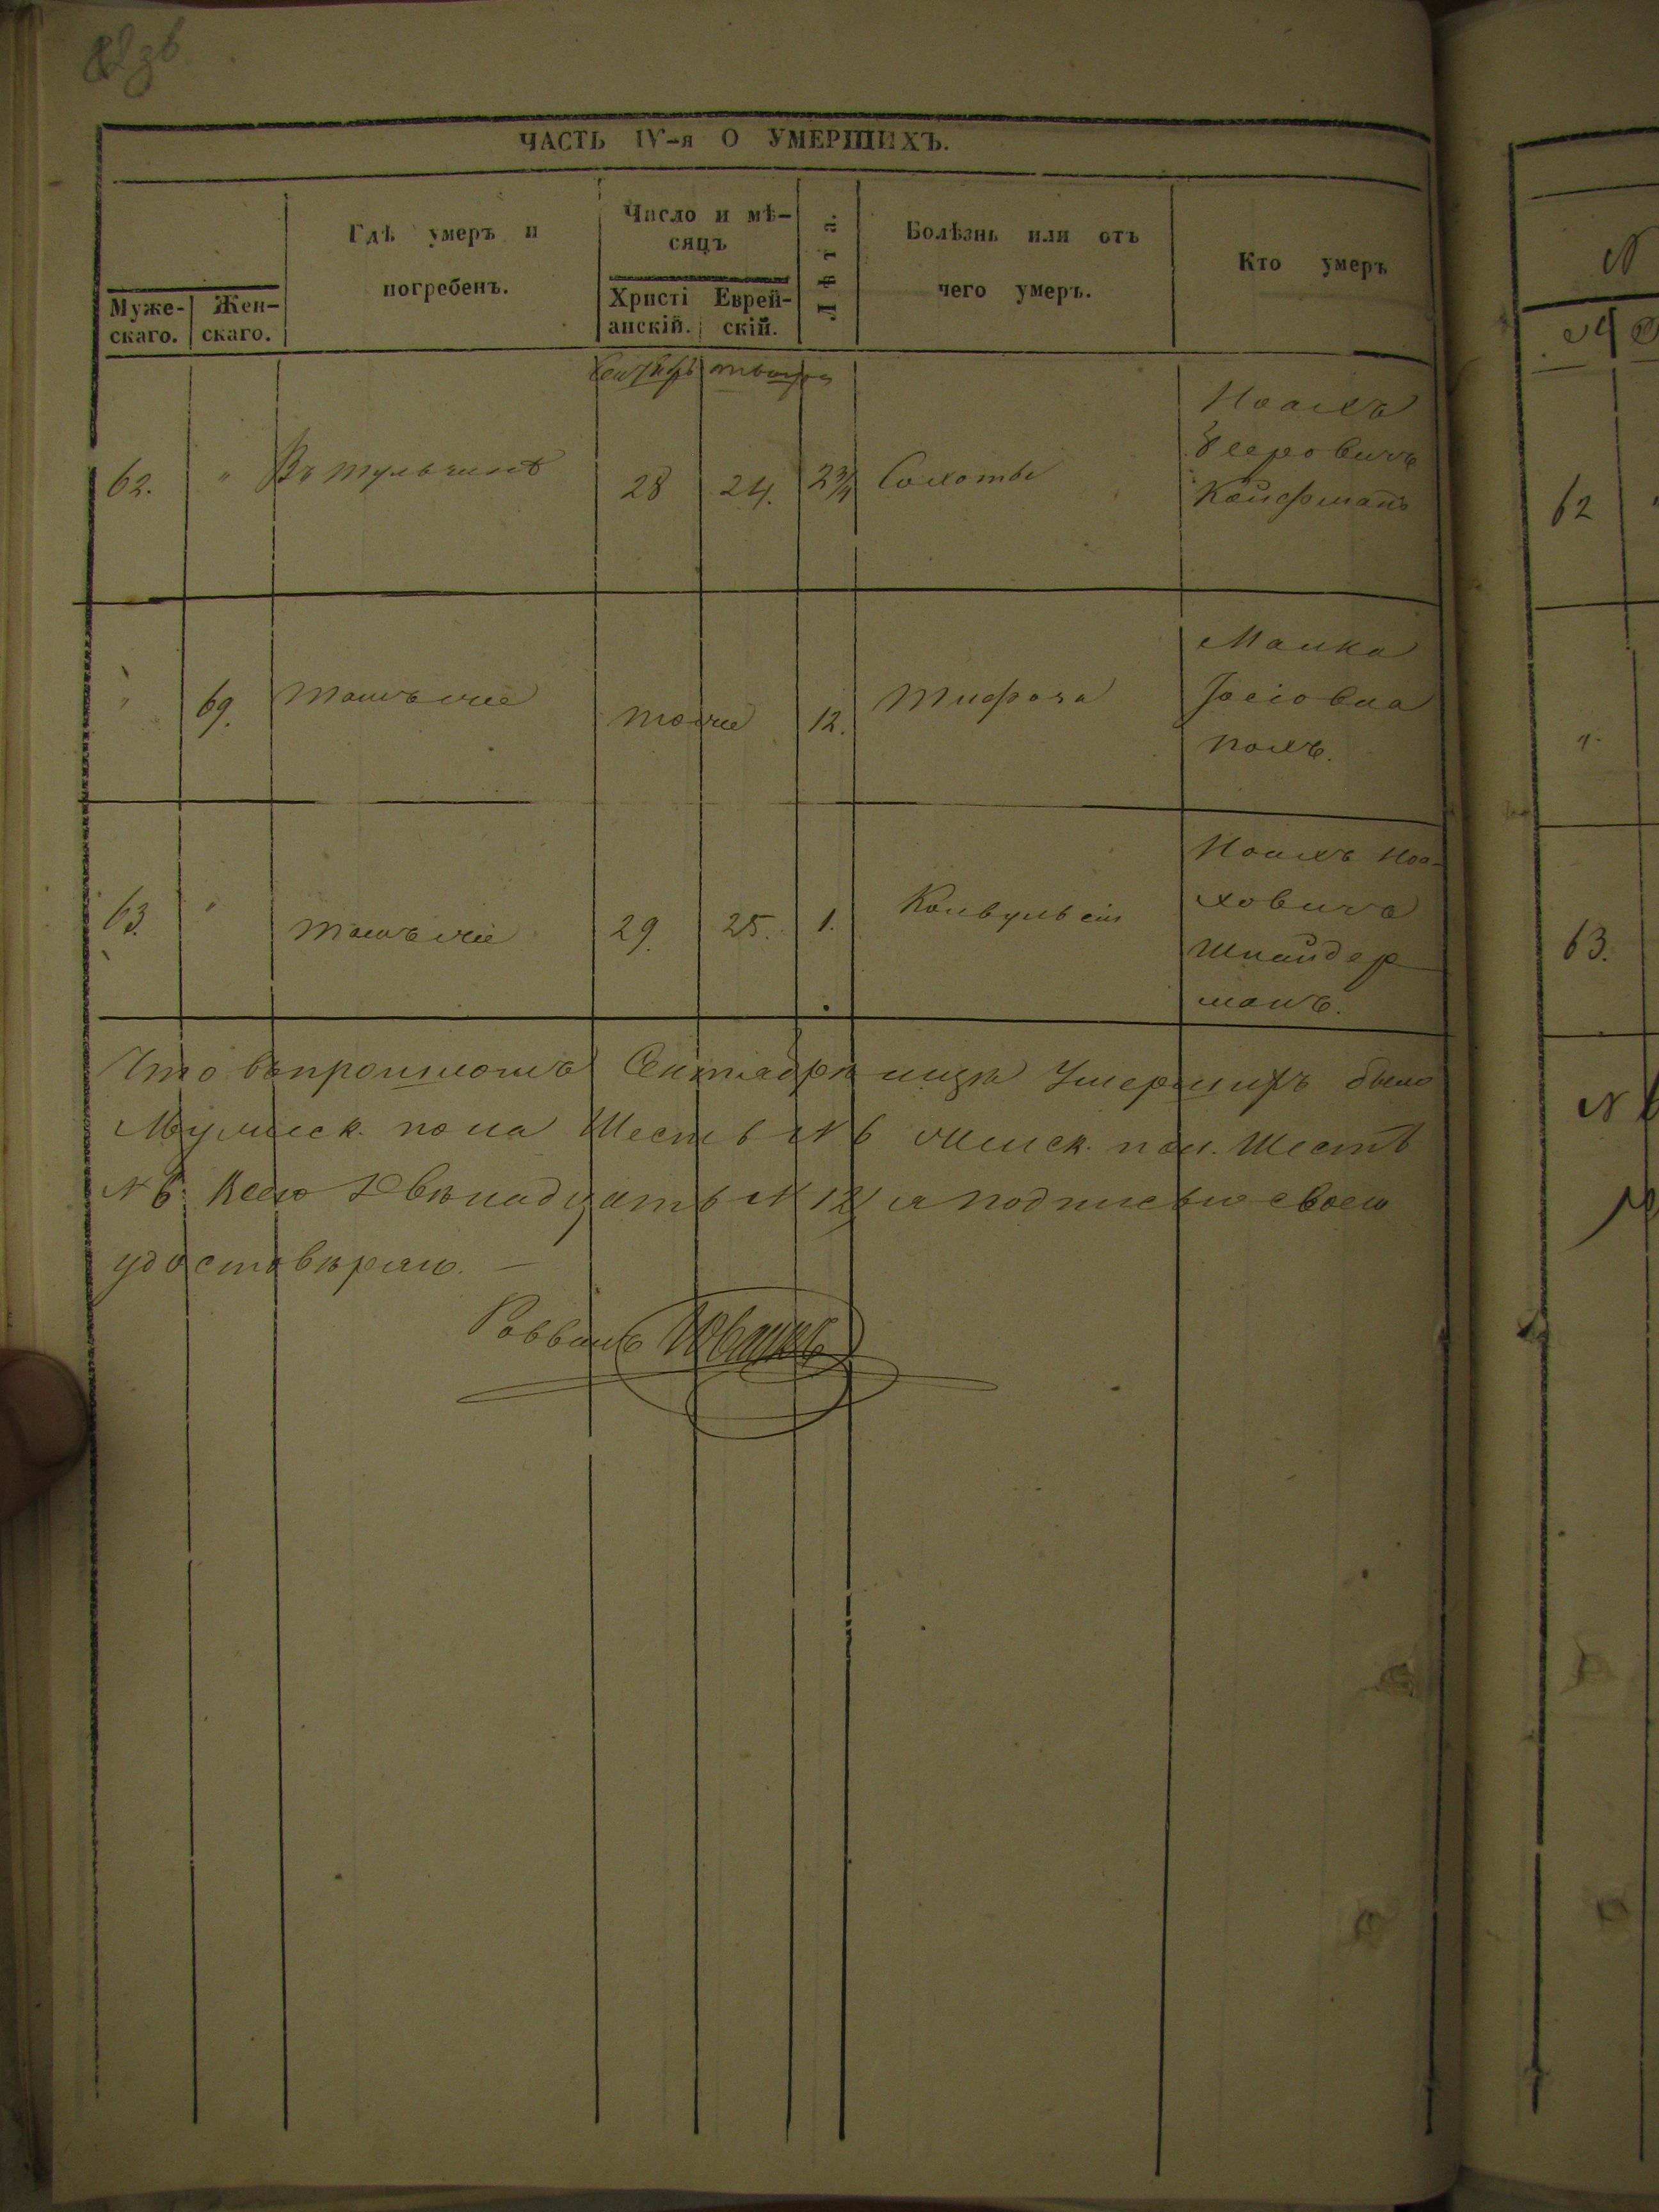 ЧАСТЬ IV-я О УМЕРШИХЪ.
Муже-
скаго.
Жен-
скаго.
Гдѣ умеръ и
погребенъ.
Число и мѣ-
сяцъ
Христі
анскій.
Еврей-
скій.
Лѣта.
Болѣзнь или отъ
чего умеръ.
Кто умеръ
62. " Въ Тульчинѣ 28 24. 2¾ Сухоты
Ноахъ
Кайфманъ
" 69. Тамъ же тоже 12. Тифоза
Малка
Іосіовна
Полъ.
63. " Тамъ же 29. 25. 1. Конвульсіи
Ноахъ Ноа-
ховичъ
Шнайдер
манъ.
Что въ прошломъ Сентябрѣ мцѣ Умершихъ было
Мужеск. пола Шесть N 6 Женск. пол. Шесть
N 6. Всего Двѣнадцать N 12 я подписью своею
удостовѣряю. —
Раввинъ
N
62
"
63.
N 6